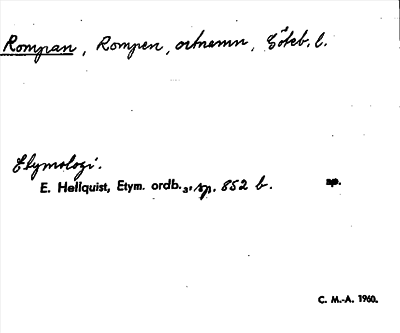 Rompan, Rompen, ortnamn, Göteb. l.
Etymologi.
E. Hellquist, Etym. ordb.₃, sp. 852 b. sp.
C. M.-A. 1960.